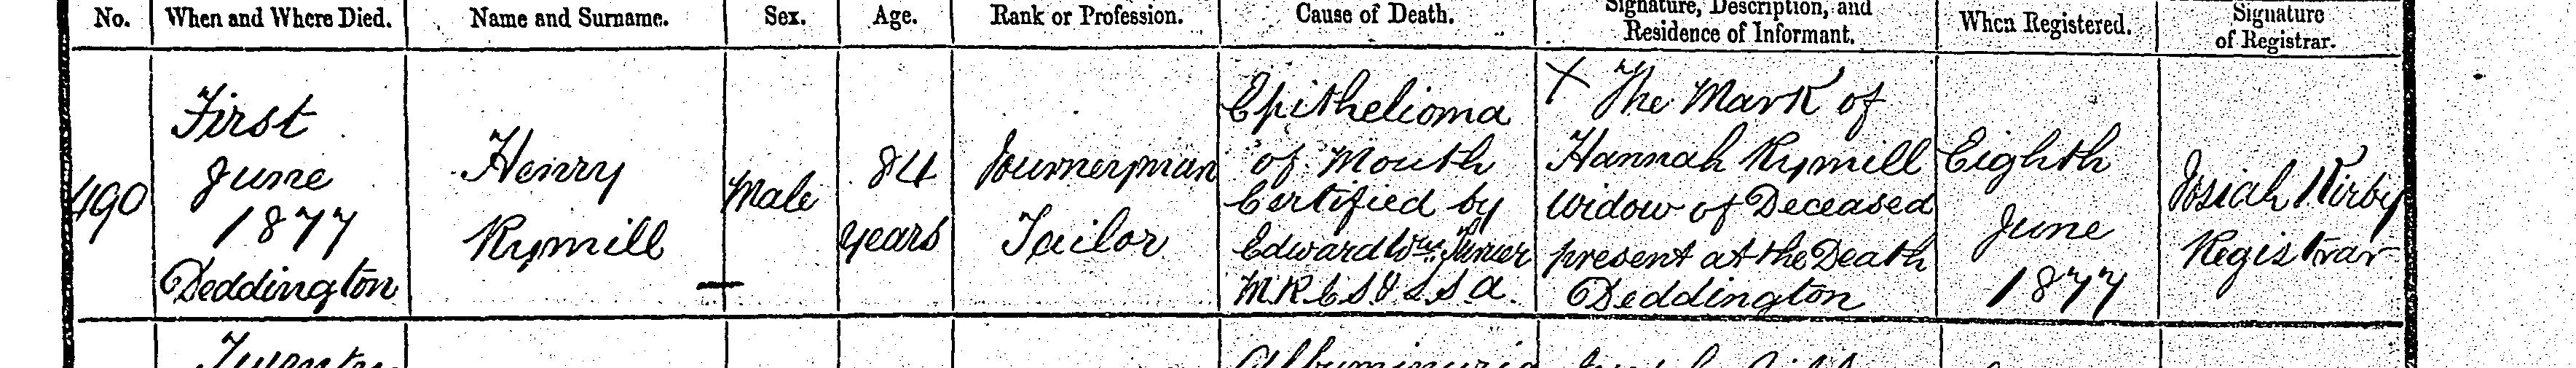 No.
When and Where Died.
Name and Surname.
Sex.
Age.
Rank or Profession.
Cause of Death.
Signature, Description, and
Residence of Informant.
When Registered.
Signature
of Registrar.
490
First
June
1877
Deddington
Henry
Rymill
Male
84
years
Journeyman
Tailor
Epithelioma
of Mouth
Certified by
Edward Wm. Turner
MRCS & LSA.
X The Mark of
Hannah Rymill
Widow of Deceased
present at the Death
Deddington
Eighth
June
1877
Josiah Kirby
Registrar
Albuminuria